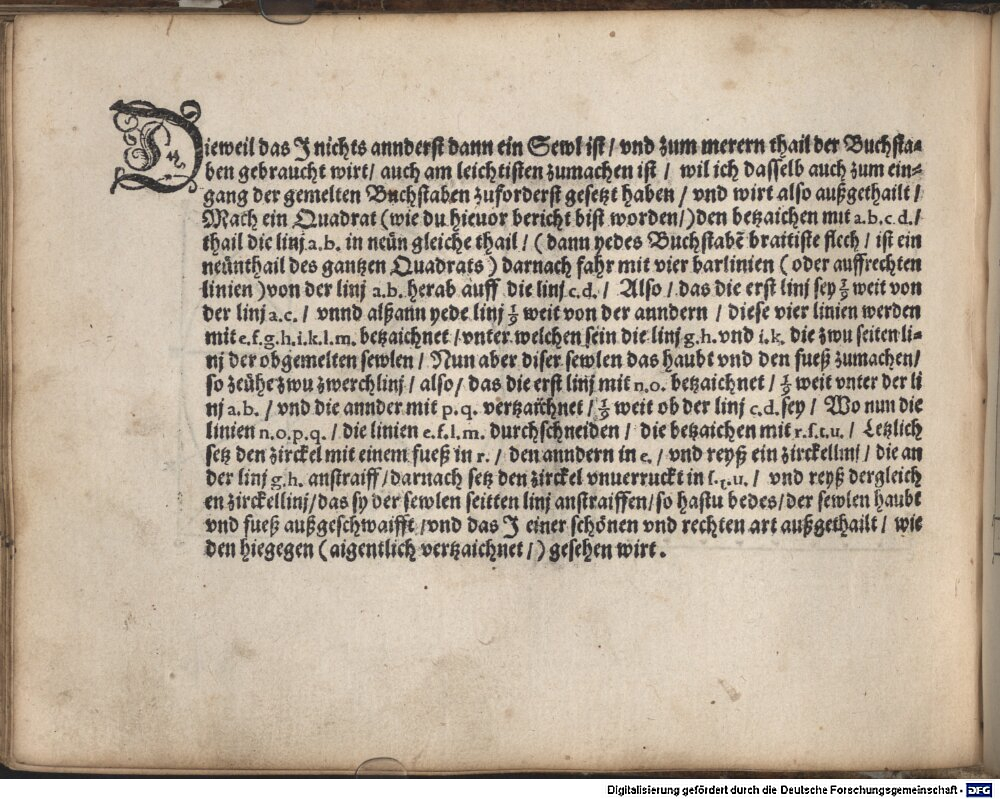 Dieweil das J nichts annderst dann ein Sewl ist / vnd zum merern thail der Buchsta-
ben gebraucht wirt / auch am leichtisten zumachen ist / wil ich dasselb auch zum ein-
gang der gemelten Buchstaben zuforderst gesetzt haben / vnd wirt also außgethailt /
Mach ein Quadrat (wie du hieuor bericht bist worden /) den betzaichen mit a.b.c.d. /
thail die linj a.b. in neün gleiche thail / (dann yedes Buchstabē braitiste flech / ist ein
neünthail des gantzen Quadrats) darnach fahr mit vier barlinien (oder auffrechten
linien) von der linj a.b. herab auff die linj c.d. / Also / das die erst linj sey 1/9 weit von
der linj a.c. / vnnd alßann yede linj 1/9 weit von der anndern / diese vier linien werden
mit e.f.g.h.i.k.l.m. betzaichnet / vnter welchen sein die linj g.h. vnd i.k. die zwu seiten li-
nj der obgemelten sewlen / Nun aber diser sewlen das haubt vnd den fueß zumachen /
so zeühe zwu zwerchlinj / also / das die erst linj mit n.o. betzaichnet / 1/9 weit vnter der li
nj a.b. / vnd die annder mit p.q. vertzaichnet / 1/9 weit ob der linj c.d. sey / Wo nun die
linien n.o.p.q. / die linien e.f.l.m. durchschneiden / die betzaichen mit r.s.t.u. / Letzlich
setz den zirckel mit einem fueß in r. / den anndern in e. / vnd reyß ein zirckellinj / die an
der linj g.h. anstraiff / darnach setz den zirckel vnuerruckt in s.t.u. / vnd reyß dergleich
en zirckellinj / das sy der sewlen seitten linj anstraiffen / so hastu bedes / der sewlen haubt
vnd fueß außgeschwaifft / vnd das J einer schönen vnd rechten art außgethailt / wie
den hiegegen (aigentlich vertzaichnet /) gesehen wirt.
Digitalisierung gefördert durch die Deutsche Forschungsgemeinschaft - DFG